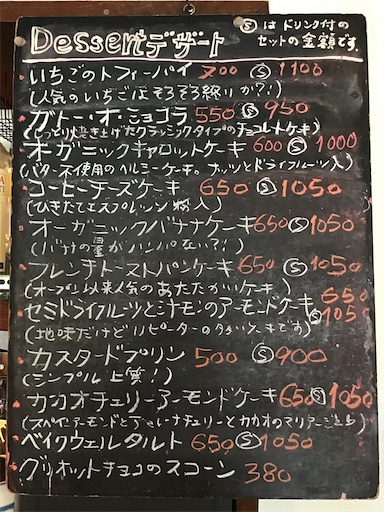 Dessertデザート
Ⓢはドリンク付の
セットの金額です.
いちごのトフィーパイ 700 Ⓢ 1100
(人気のいちごはそろそろ終りか?!)
ガトー・オ・ショコラ 550 Ⓢ 950
(しっとり焼き上げたクラッシックタイプのチョコレートケーキ)
オーガニックキャロットケーキ 600 Ⓢ 1000
(バター不使用のヘルシーケーキ。ナッツとドライフルーツ入)
コーヒーチーズケーキ 650 Ⓢ 1050
(ひきたてエスプレッソ粉入)
オーガニックバナナケーキ 650 Ⓢ 1050
(バナナの量がハンパない?!)
フレンチトーストパンケーキ 650 Ⓢ 1050
(オープン以来人気のあたたかいケーキ)
セミドライフルーツとシナモンのアーモンドケーキ 650 Ⓢ 1050
(地味だけどリピーターの多いケーキです)
カスタードプリン 500 Ⓢ 900
(シンプル上質!)
カカオチェリーアーモンドケーキ 650 Ⓢ 1050
(スペインアーモンドとチェリーとカカオのマリアージュ)
ベイクウェルタルト 650 Ⓢ 1050
グリオットチョコのスコーン 380